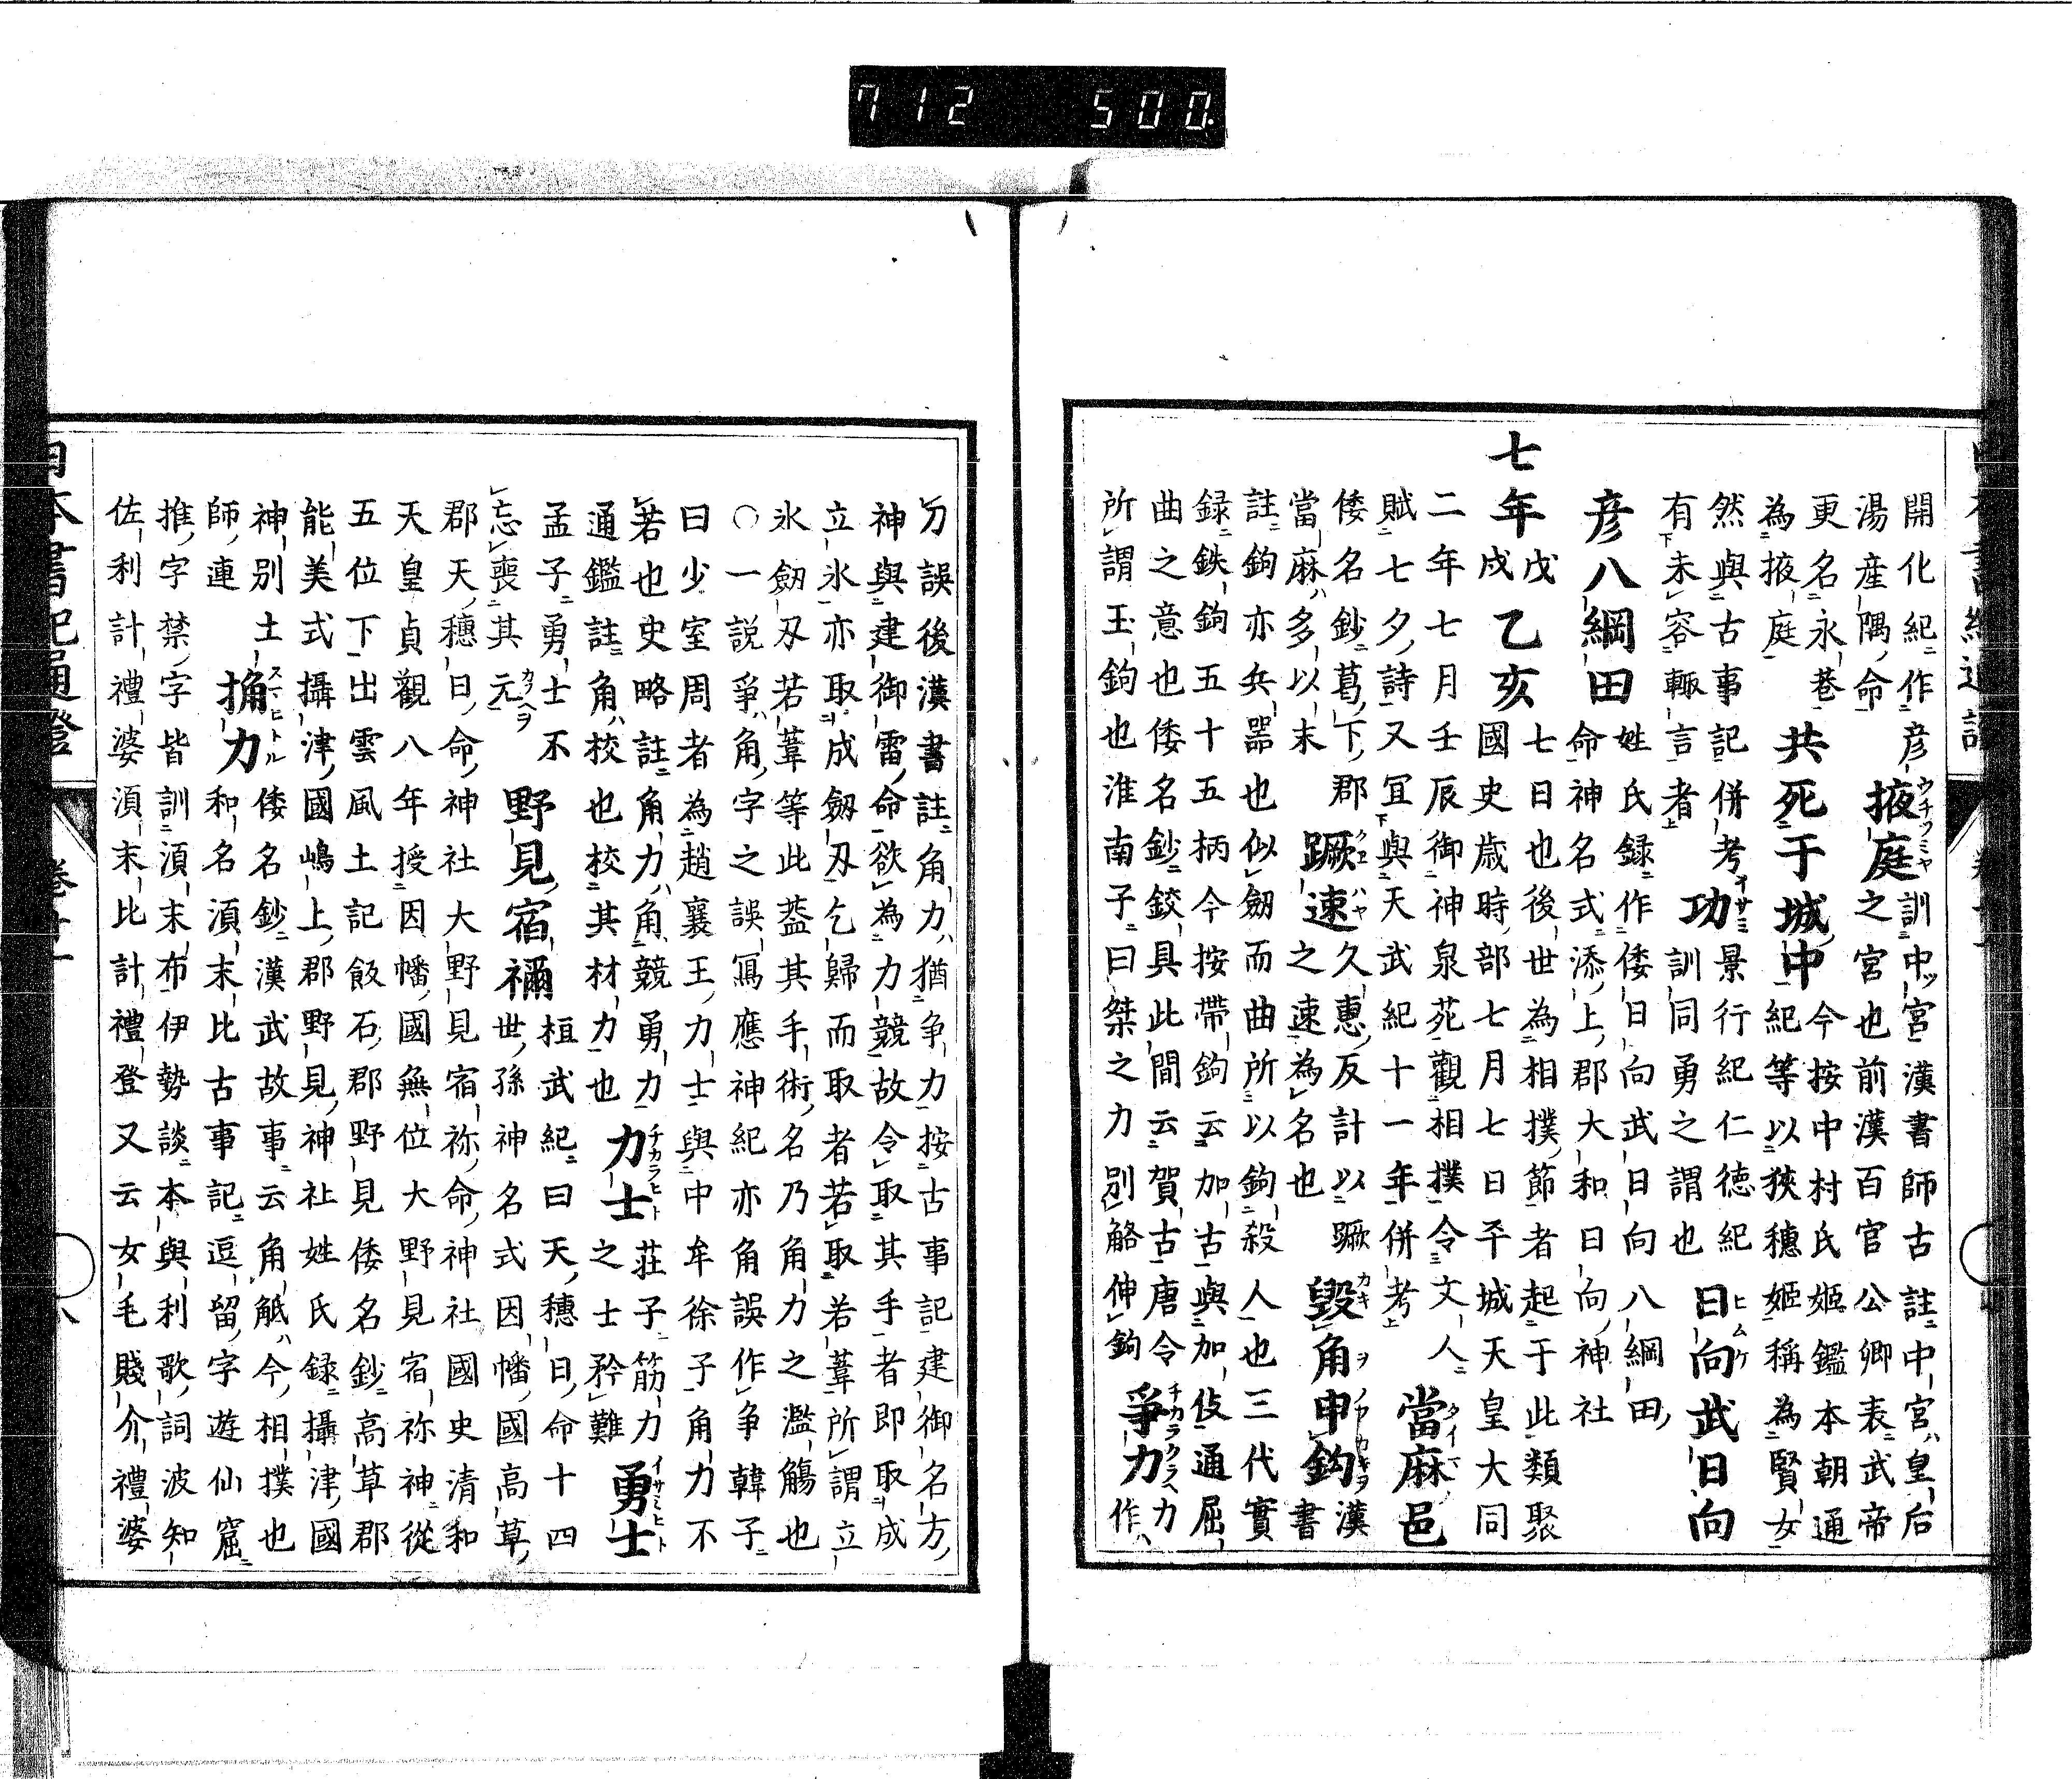 712 500
開化紀作彦
湯産隅命
更名永巷
為掖庭
掖庭 ウチツミヤ
訓中ツ宮漢書師古註中宮ハ皇后
之宮也前漢百官公卿表武帝
共死于城中
今按中村氏姫鑑本朝通
紀等以狹穗姫稱為賢女
然與古事記併考
有未容輙言者
功 イサミ
景行紀仁德紀
訓同勇之謂也
日向武日向 ヒムケ
彦八綱田
姓氏録作倭日向武日向八綱田
命神名式添上郡大和日向神社
七年戊戌
乙亥
七日也後世為相撲節者起于此類聚
國史歳時部七月七日平城天皇大同
二年七月壬辰御神泉苑觀相撲令文人
賦七夕詩又宜與天武紀十一年併考
當麻邑 タイマ
倭名鈔葛下郡
當麻ハ多以末
蹶速 クエハヤ
久惠反計以蹶
之速為名也
毀角申鈎 カキヲ ノフ カギヲ
漢書
註鈎亦兵器也似劒而曲所以鈎殺人也三代實
録鉄鈎五十五柄今按帶鈎云加古與加伎通屈
曲之意也倭名鈔鉸具此間云賀古唐令
所謂玉鈎也淮南子曰桀之力別觡伸鈎
爭力 チカラクラヘ
力作
刀誤後漢書註角力ハ猶争力按古事記建御名方
神與建御雷命欲為力競故令取其手者即取成
立氷亦取成劒刃乞歸而取者若取若葦所謂立
氷劒刃若葦等此葢其手術名乃角力之濫觴也
○一說爭ハ角字之誤寫應神紀亦角誤作争韓子
曰少室周者為趙襄王力士與中牟徐子角力不
若也史略註角力ハ角競勇力
通鑑註角ハ校也校其材力也
力士 チカラヒト
荘子筋力
之士矜難
勇士 イサミヒト
孟子勇士不
忘喪其元 カウヘヲ
野見宿禰
桓武紀曰天穗日命十四
世孫神名式因幡國高草
郡天穗日命神社大野見宿祢命神社國史清和
天皇貞觀八年授因幡國無位大野見宿祢神從
五位下出雲風土記飯石郡野見倭名鈔高草郡
能美式攝津國嶋上郡野見神社姓氏録攝津國
神別土
師連
捔力 スマヒトル
倭名鈔漢武故事云角觝ハ今相撲也
和名湏末比古事記逗留字遊仙窟
推字禁字皆訓湏末布伊勢談本與利歌詞波知
佐利計禮婆湏末比計禮登又云女毛賤介禮婆
日本書紀通證
八